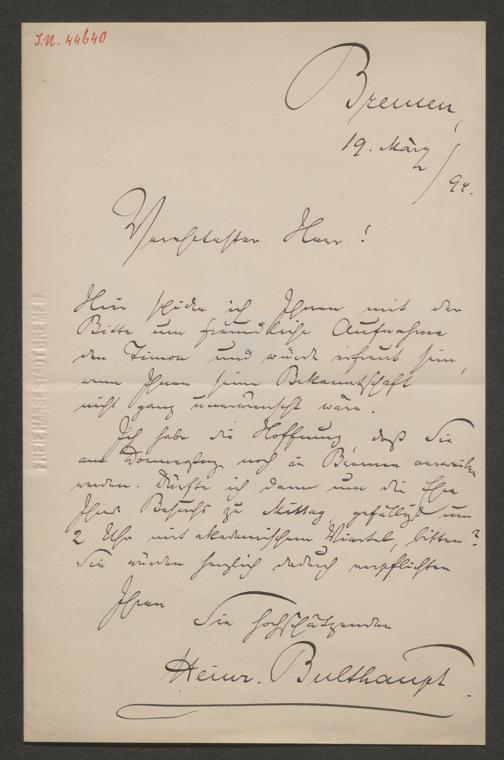 J.N. 44640
Bremen,
19. März / 94.
Verehrtester Herr!
Hier schicke ich Ihnen mit der
Bitte um freundliche Aufnahme
den Timon und würde erfreut sein,
wenn Ihnen seine Bekanntschaft
nicht ganz unerwünscht wäre.
Ich habe die Hoffnung, daß Sie
am Donnerstag noch in Bremen
werden. Dürfte ich dann um die Ehre
Ihres Besuchs zu Mittag, gefälligst um
2 Uhr mit akademischem Viertel, bitten?
Sie würden herzlich dadurch verpflichten
Ihren
Sie hochschätzenden
Heinr. Bulthaupt.
FREIE HANSESTADT BREMEN